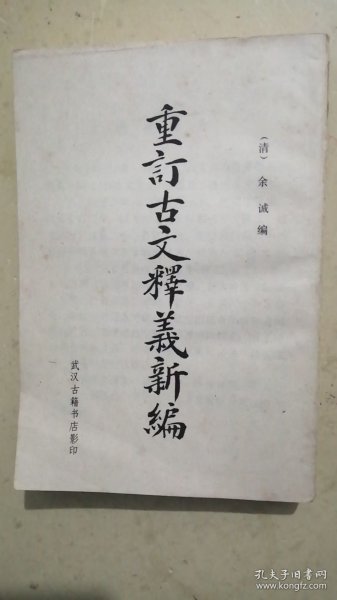 （清）余诚编
重訂古文釋義新編
武汉古籍书店影印
孔夫子旧书网
www.kongfz.com